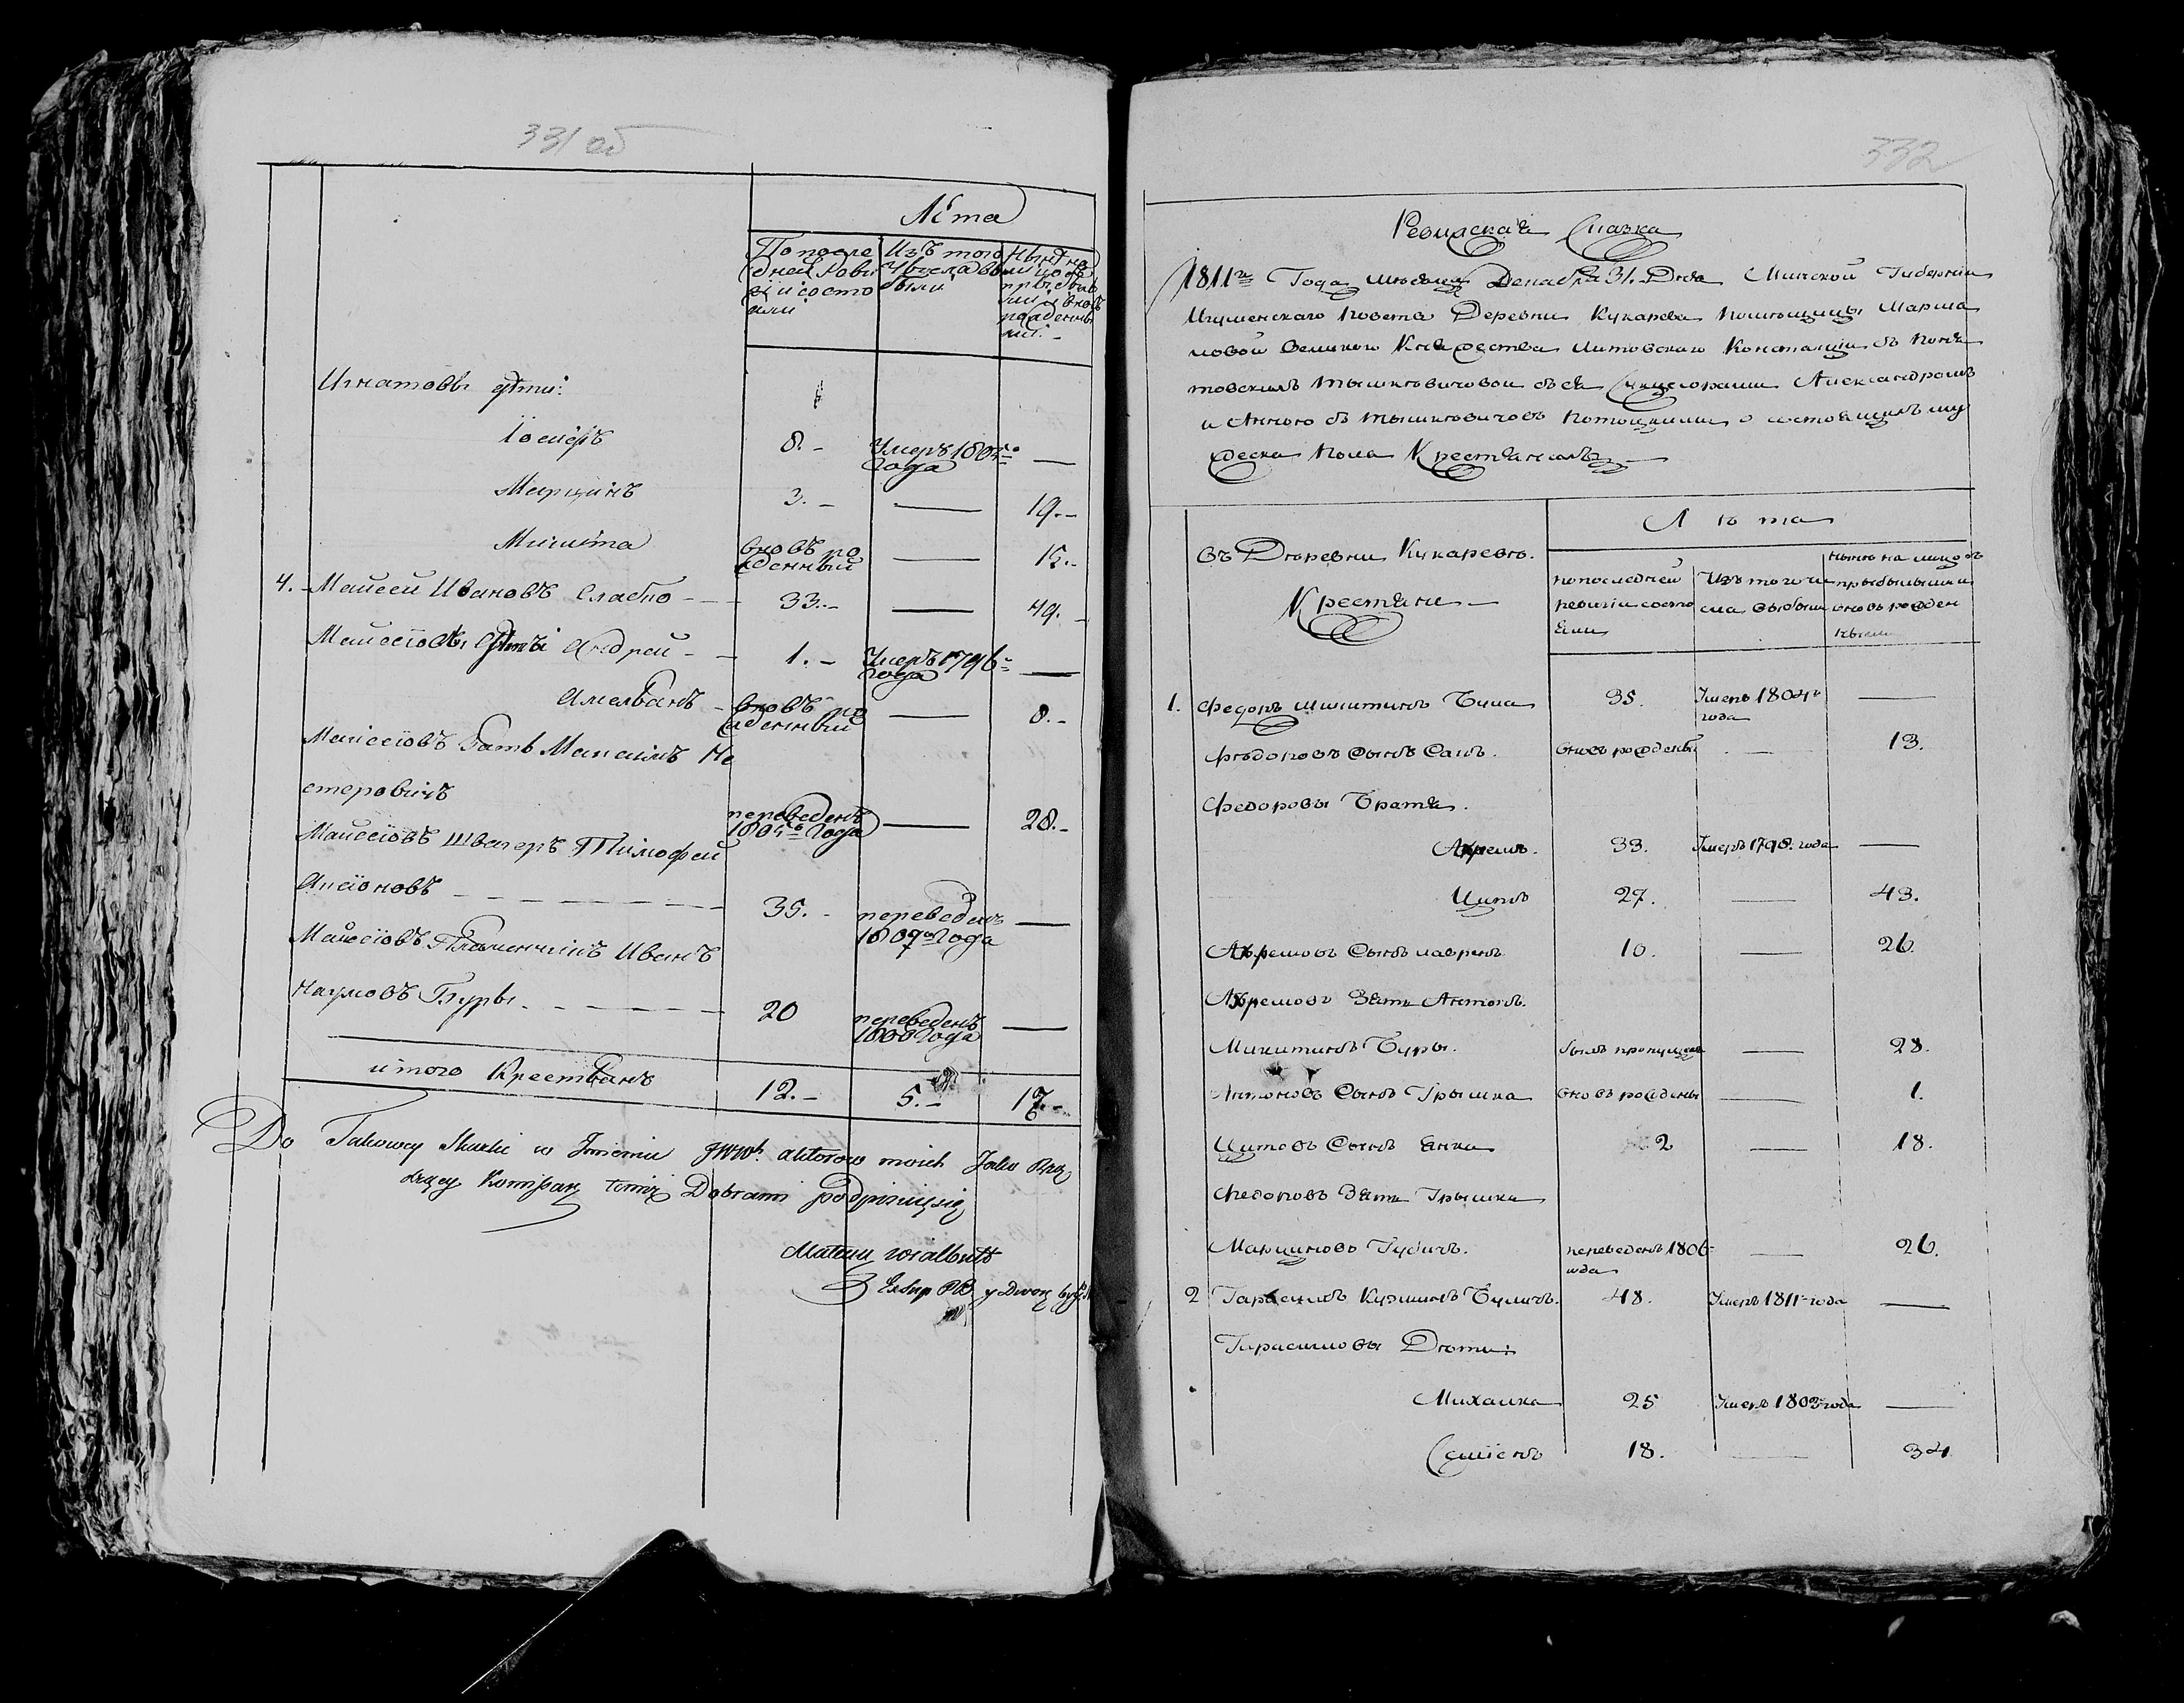 331 об
Лѣта
По после Изъ того Нынѣ на
дней реви числа вы лицо съ
зіи состо были прибыв
яли шими вновь
рожденны
ми.
Игнатовы дѣти:
Іосифъ 8. Умеръ 1804го года —
Марцинъ 3. — 19.
Микита вновь рожденный — 15.
4. Майсей Ивановъ Слабко 33. — 49.
Майсіовы дѣти Андрей 1. Умеръ 1796 года —
Амельянъ вновь рожденный — 8.
Майсіовъ Зять Максимъ Не
стеровичъ переведенъ 1804го года — 28.
Майсіовъ Швагеръ Тимофей
Аксіоновъ 35. переведенъ 1807го года —
Майсіовъ Племенникъ Иванъ
Наумовъ Буры 20 переведенъ 1808 года —
итого Крестьянъ 12. 5. 17.
Do Takowey Skazki w Imieniu JWWch aktorow moich Jako Rzą
dzący Kompany temi Dobrami podpisuję się
Mateusz Wialbutt
332
Ревизская Сказка
1811го Года месяца Декабря 31. Дня Минской Губернии
Игуменскаго Повета Деревни Кукарева Помещицы Марша
ловой Великого Княжества Литовскаго Констанции съ Поня
товскихъ Тышкевичовой съ ея Сукцесорами Александромъ
и Анною съ Тышкевичовъ Потоцкими о состоящихъ му
жеска Пола Крестянахъ
Въ Деревни Кукарево.
Крестяне
Лѣта
по последней ревизіи состо яли
Изъ того чи сла выбыли
ныне на лицо съ прыбылыми и вновь рожден ными
1. Федоръ Микитинъ Була 35. Умеръ 1804го года —
Федоровъ Сынъ Сакъ. вновь рожденый — 13.
Федоровы Братя.
Ахремъ. 33. Умеръ 1798. года —
Цитъ 27. — 43.
Ахремовъ Сынъ Лаврень 10. — 26.
Ахремовъ Зять Антонъ
Микитинъ Буры. былъ пропущенъ — 28.
Антоновъ Сынъ Грышка вновь рожденый — 1.
Цитовъ Сынъ Янка 2 — 18.
Федоровъ Зять Грышка
Марциновъ Губичъ. переведенъ 1806 года — 26.
2 Гарасимъ Курилинъ Буличъ. 48. Умеръ 1811 года —
Гарасимовы Дети:
Михалка 25 Умеръ 1803 года —
Семіенъ 18. — 34